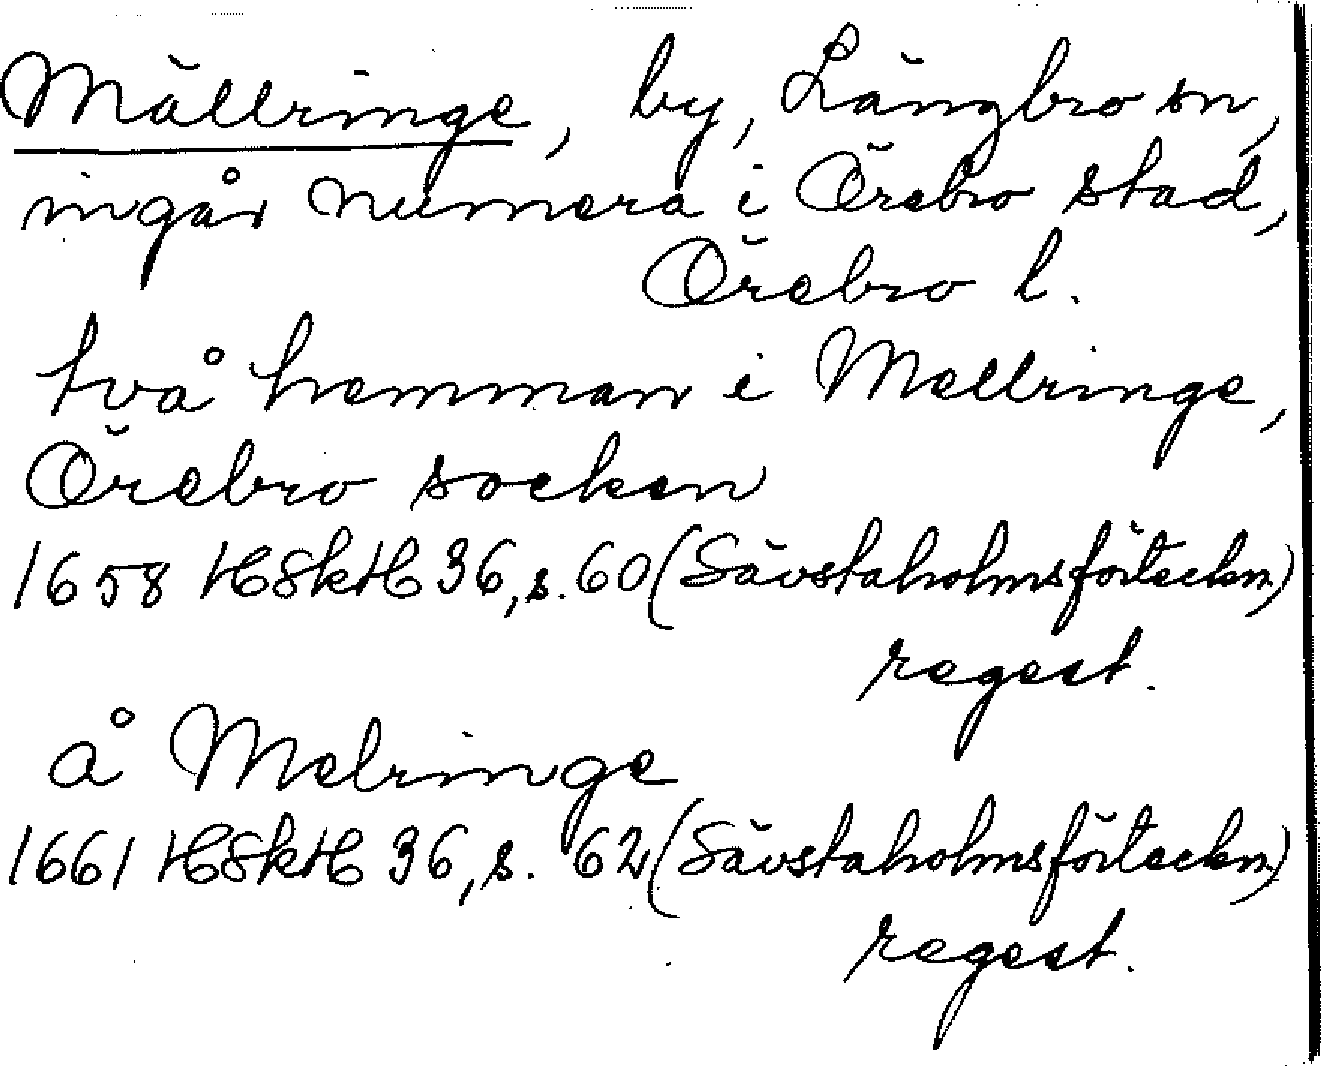 Mällringe, by, Längbro sn,
ingår numera i Örebro stad,
Örebro l.
två hemman i Mellringe,
Örebro socken
1658 HSkH 36, s. 60 (Sävstaholmsförteckn.)
regest.
å Melringe
1661 HSkH 36, s. 62 (Sävstaholmsförteckn.)
regest.